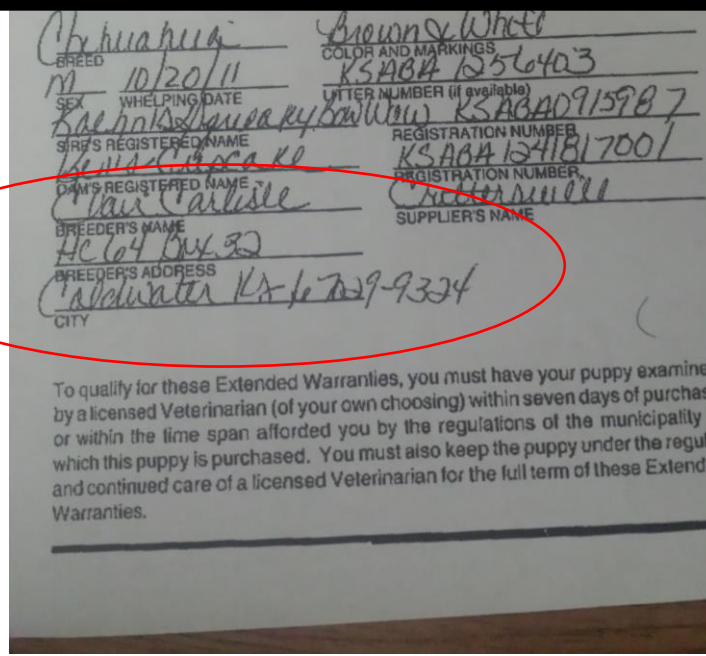 Chihuahua Brown & White
BREED COLOR AND MARKINGS
M 10/20/11 KSABA 1256403
SEX WHELPING DATE LITTER NUMBER (if available)
KSABA0915987
SIRE'S REGISTERED NAME REGISTRATION NUMBER
Cupcake KSABA 1241817001
DAM'S REGISTERED NAME REGISTRATION NUMBER
Clair Carlisle
BREEDER'S NAME SUPPLIER'S NAME
HC 64 Box 32
BREEDER'S ADDRESS
Coldwater KS 67029-9324
CITY
To qualify for these Extended Warranties, you must have your puppy examine
by a licensed Veterinarian (of your own choosing) within seven days of purchas
or within the time span afforded you by the regulations of the municipality
which this puppy is purchased. You must also keep the puppy under the regul
and continued care of a licensed Veterinarian for the full term of these Extend
Warranties.